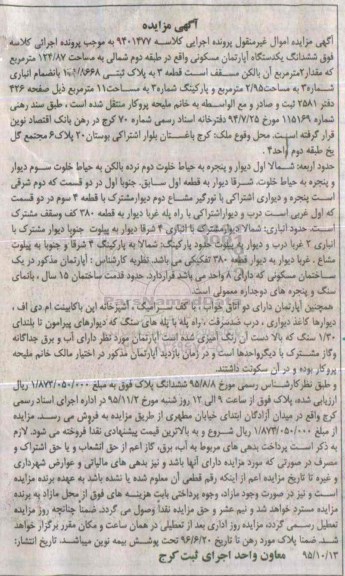 آگهی مزایده
آگهی مزایده اموال غیرمنقول پرونده اجرایی کلاسه ۹۴۰۱۴۷۷ به موجب پرونده اجرائی کلاسه
فوق ششدانگ یکدستگاه آپارتمان مسکونی واقع در طبقه دوم شمالی به مساحت ۱۲۴/۸۷ مترمربع
که مقدار ۲مترمربع آن بالکن مسقف است قطعه ۳ به پلاک ثبتی بانضمام انباری
شماره۳ به مساحت۲/۹۵ مترمربع و پارکینگ شماره۳ به مساحت۱۱ مترمربع ذیل صفحه ۴۲۶
دفتر ۲۵۸۱ ثبت و صادر و مع الواسطه به خانم ملیحه پروکار منتقل شده است ، طبق سند رهنی
شماره ۱۱۵۱۶۹ مورخ ۹۴/۷/۲۵ دفترخانه اسناد رسمی شماره ۷۰ کرج در رهن بانک اقتصاد نوین
قرار گرفته است. محل وقوع ملک: کرج باغستان بلوار اشتراکی بوستان ۲۰ پلاک۶ مجتمع گل
یخ طبقه دوم واحد۴ .
حدود اربعه: شمالا اول دیوار و پنجره به حیاط خلوت دوم نرده بالکن به حیاط خلوت سوم دیوار
و پنجره به حیاط خلوت. شرقا دیوار به قطعه اول سابق. جنوبا اول در دو قسمت که دوم شرقی
است پنجره و دیواری اشتراکی با نورگیر مشاع دوم دیوارمشترک با قطعه ۴ سوم در دو قسمت
که اول غربی است درب و دیواراشتراکی با راه پله غربا دیوار به قطعه ۳۸۰ کف وسقف مشترک
است. حدود انباری: شمالا دیوارمشترک با انباری ۴ شرقا دیوار به پیلوت جنوبا دیوار مشترک با
انباری ۲ غربا درب و دیوار به پیلوت حدود پارکینگ: شمالا به پارکینگ ۴ شرقا و جنوبا به پیلوت
مشاع . غربا دیوار به دیوار قطعه ۳۸۰ تفکیکی می باشد. نظریه کارشناس : آپارتمان مذکور در یک
ساختمان مسکونی که دارای ۸ واحد می باشد قراردارد. حدود قدمت ساختمان ۱۵ سال ، بانمای
سنگ و پنجره های دوجداره معمولی است.
همچنین آپارتمان دارای دو اتاق خواب ، با کف سرامیک ، آشپزخانه اپن باکابینت ام دی اف ،
دیوارها کاغذ دیواری ، درب ضدسرقت ، راه پله با پله های سنگ که دیوارهای پیرامون تا بلندای
۱/۳۰ سنگ که بالا دست آن رنگ آمیزی شده است آپارتمان مورد نظر دارای آب و برق جداگانه
وگاز مشترک با دیگرواحدها است و در زمان بازدید آپارتمان مذکور در اختیار مالک خانم ملیحه
پروکار بوده و در آن سکونت داشتند.
و طبق نظرکارشناس رسمی مورخ ۹۵/۸/۸ ششدانگ پلاک فوق به مبلغ ۱/۸۷۳/۰۵۰/۰۰۰ ریال
ارزیابی شده، پلاک فوق از ساعت ۹ الی ۱۲ روز شنبه مورخ ۹۵/۱۱/۲ در اداره اجرای اسناد رسمی
کرج واقع در میدان آزادگان ابتدای خیابان مطهری از طریق مزایده به فروش می رسد. مزایده
از مبلغ ۱/۸۷۳/۰۵۰/۰۰۰ ریال شروع و به بالاترین قیمت پیشنهادی نقدا فروخته می شود. لازم
به ذکر است پرداخت بدهی های مربوط به آب، برق، گاز اعم از حق انشعاب و یا حق اشتراک و
مصرف در صورتی که مورد مزایده دارای آنها باشد و نیز بدهی های مالیاتی و عوارض شهرداری
و غیره تا تاریخ مزایده اعم از اینکه رقم قطعی آن معلوم شده یا نشده باشد به عهده برنده مزایده
است و نیز در صورت وجود مازاد، وجوه پرداختی بابت هزینه های فوق از محل مازاد به برنده
مزایده مسترد خواهد شد و نیم عشر و حق مزایده نقدا وصول می گردد. ضمنا چنانچه روز مزایده
تعطیل رسمی گردد، مزایده روز اداری بعد از تعطیلی در همان ساعت و مکان مقرر برگزار خواهد
شد. ضمنا پلاک مورد رهن تا تاریخ ۹۶/۶/۲۰ تحت پوشش بیمه نوین میباشد. تاریخ انتشار:
۹۵/۱۰/۱۳ معاون واحد اجرای ثبت کرج